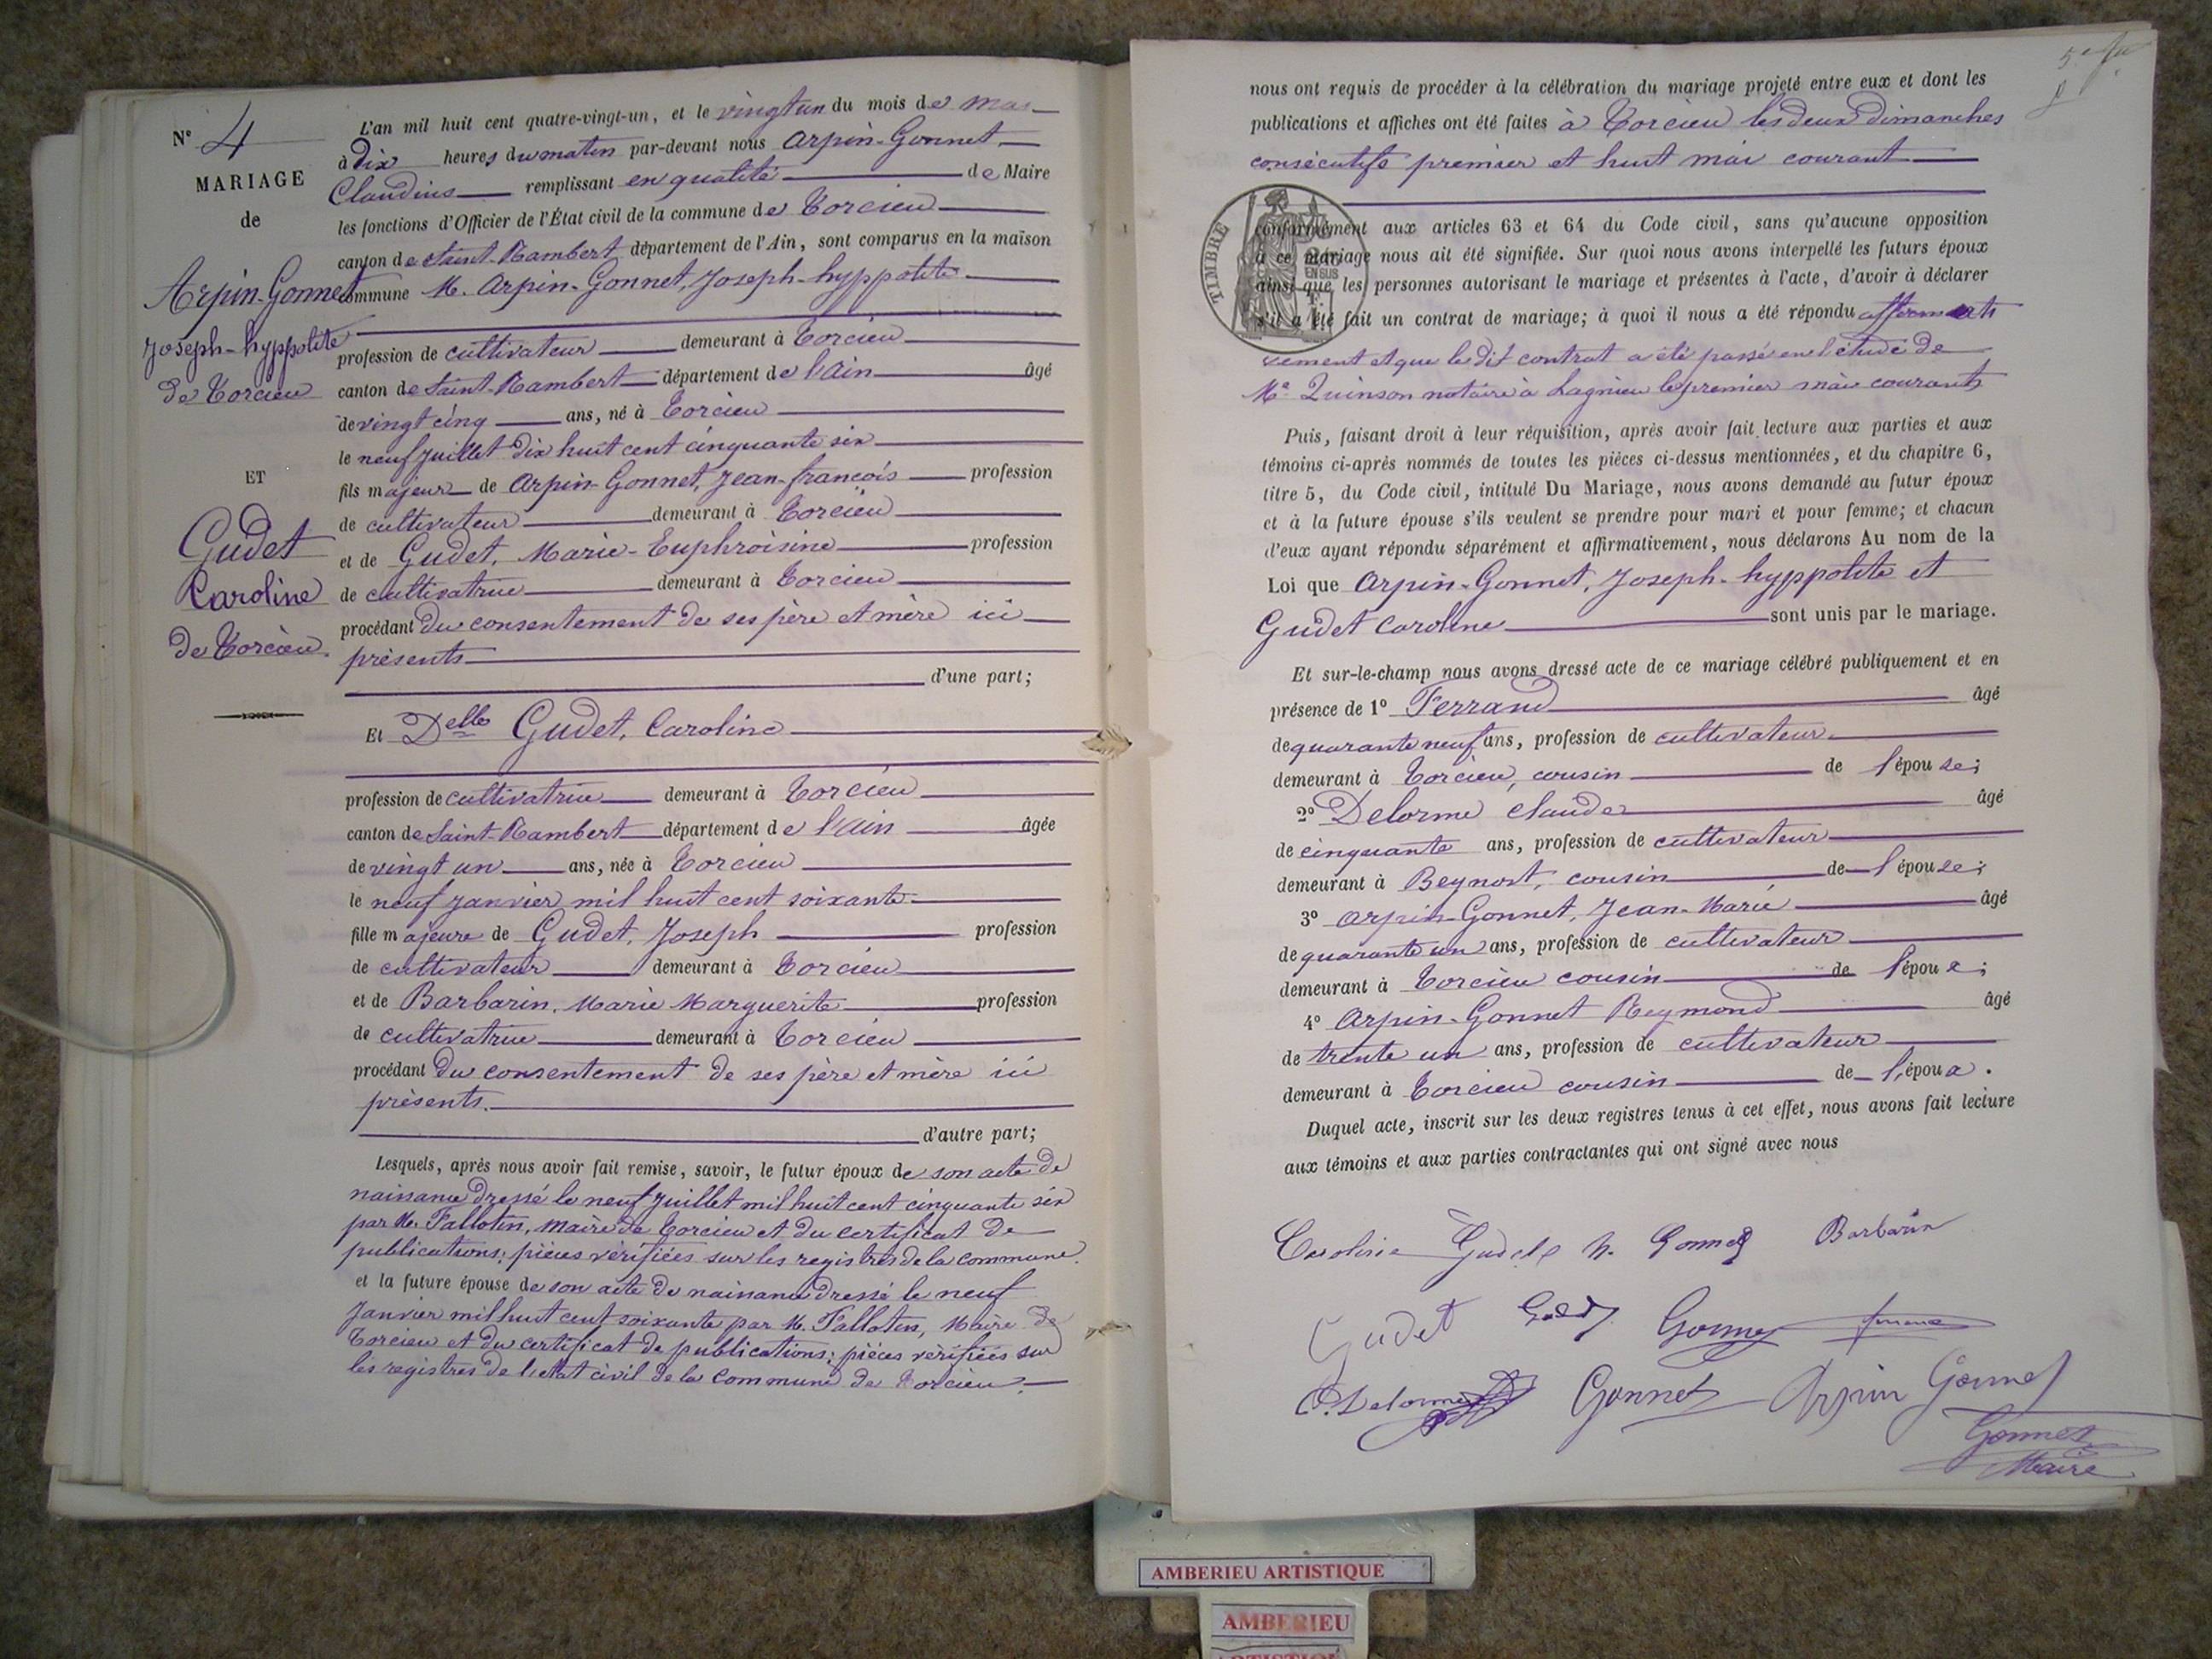 N° 4
MARIAGE
de
Arpin-Gonnet
Joseph-hyppolite
de Torcieu
ET
Gudet
Caroline
de Torcieu.
L'an mil huit cent quatre-vingt-un, et le vingt un du mois de mai
à Dix heures du matin par-devant nous Arpin-Gonnet
Claudius remplissant en qualité de Maire
les fonctions d'Officier de l'État civil de la commune de Torcieu
canton de Saint-Rambert département de l'Ain, sont comparus en la maison
commune M. Arpin-Gonnet, Joseph-hyppolite
profession de cultivateur demeurant à Torcieu
canton de Saint-Rambert département de l'Ain âgé
de vingt cinq ans, né à Torcieu
le neuf Juillet dix huit cent cinquante six
fils majeur de Arpin-Gonnet, Jean-françois profession
de cultivateur demeurant à Torcieu
et de Gudet, Marie-Euphroisine profession
de cultivatrice demeurant à Torcieu
procédant du consentement de ses père et mère ici
présents
d'une part;
Et Delle Gudet, Caroline
profession de cultivatrice demeurant à Torcieu
canton de Saint-Rambert département de l'Ain âgée
de vingt un ans, née à Torcieu
le neuf janvier mil huit cent soixante
fille majeure de Gudet, Joseph profession
de cultivateur demeurant à Torcieu
et de Barbarin, Marie Marguerite profession
de cultivatrice demeurant à Torcieu
procédant du consentement de ses père et mère ici
présents.
d'autre part;
Lesquels, après nous avoir fait remise, savoir, le futur époux de son acte de
naissance dressé le neuf Juillet mil huit cent cinquante six
par M. Fallotin, Maire de Torcieu et du certificat de
publications; pièces vérifiées sur les registres de la commune.
et la future épouse de son acte de naissance dressé le neuf
Janvier mil huit cent soixante par M. Fallotin, Maire de
Torcieu et du certificat de publications; pièces vérifiées sur
les registres de l'état civil de la commune de Torcieu.
nous ont requis de procéder à la célébration du mariage projeté entre eux et dont les
publications et affiches ont été faites à Torcieu les deux dimanches
consécutifs premier et huit mai courant
TIMBRE
EN SUS
conformément aux articles 63 et 64 du Code civil, sans qu'aucune opposition
à ce mariage nous ait été signifiée. Sur quoi nous avons interpellé les futurs époux
ainsi que les personnes autorisant le mariage et présentes à l'acte, d'avoir à déclarer
s'il a été fait un contrat de mariage; à quoi il nous a été répondu affirmati
vement et que le dit contrat a été passé en l'étude de
Me Quinson notaire à Lagnieu le premier mai courant
Puis, faisant droit à leur réquisition, après avoir fait lecture aux parties et aux
témoins ci-après nommés de toutes les pièces ci-dessus mentionnées, et du chapitre 6,
titre 5, du Code civil, intitulé Du Mariage, nous avons demandé au futur époux
et à la future épouse s'ils veulent se prendre pour mari et pour femme; et chacun
d'eux ayant répondu séparément et affirmativement, nous déclarons Au nom de la
Loi que Arpin-Gonnet, Joseph-hyppolite et
Gudet Caroline sont unis par le mariage.
Et sur-le-champ nous avons dressé acte de ce mariage célébré publiquement et en
présence de 1° Ferrand âgé
de quarante neuf ans, profession de cultivateur
demeurant à Torcieu, cousin de l'épouse;
2° Delorme Claude âgé
de cinquante ans, profession de cultivateur
demeurant à Beynost, cousin de l'épouse;
3° Arpin-Gonnet, Jean-Marie âgé
de quarante un ans, profession de cultivateur
demeurant à Torcieu cousin de l'épou
4° Arpin-Gonnet Reymond âgé
de trente un ans, profession de cultivateur
demeurant à Torcieu cousin de l'épou
Duquel acte, inscrit sur les deux registres tenus à cet effet, nous avons fait lecture
aux témoins et aux parties contractantes qui ont signé avec nous
Caroline Gudet h. Gonnet Barbarin
Gudet Gonnet
C. Delorme Gonnet Arpin Gonnet
Gonnet
Maire
AMBERIEU ARTISTIQUE
AMBERIEU
ARTISTIQUE